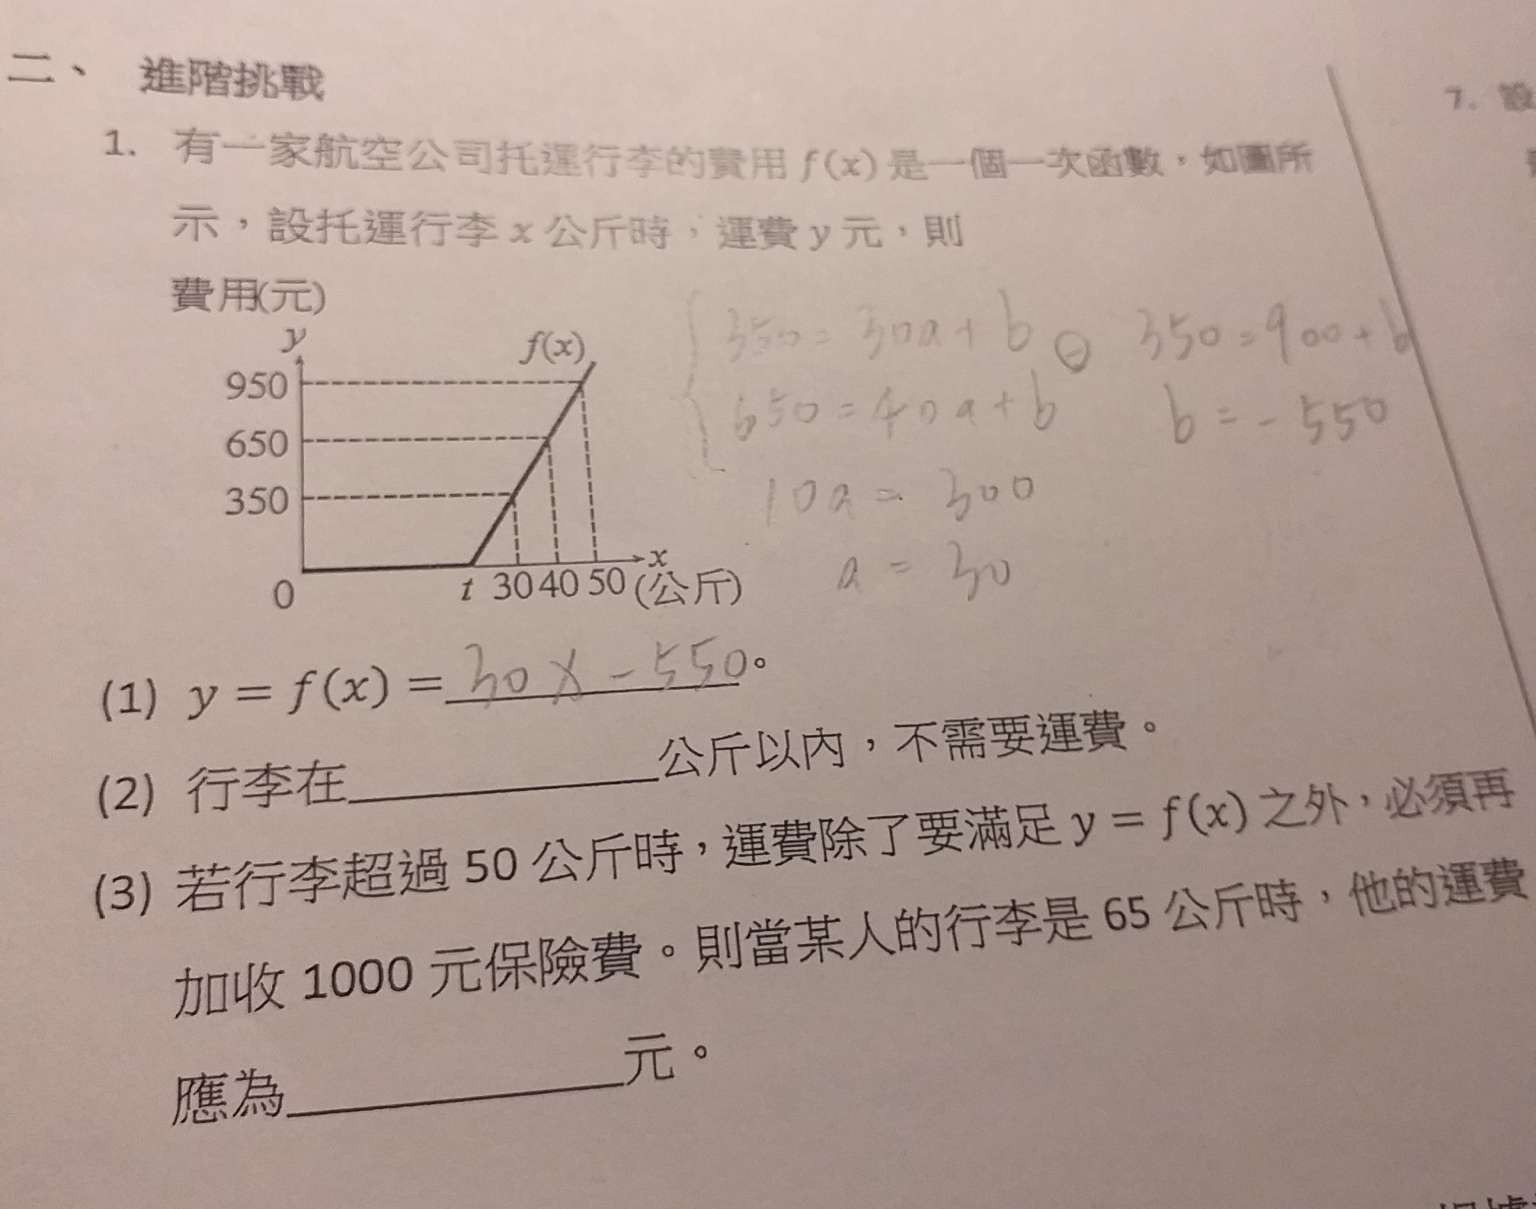 二、 進階挑戰
7. 設
1. 有一家航空公司托運行李的費用 f(x) 是一個一次函數，如圖所
示，設托運行李 x 公斤時，運費 y 元，則
費用(元)
y
f(x)
950
650
350
0
t 30 40 50 (公斤)
x
350 = 30a + b
650 = 40a + b
10a = 300
a = 30
350 = 900 + b
b = - 550
(1) y = f(x) = 30x - 550。
(2) 行李在____公斤以內，不需要運費。
(3) 若行李超過 50 公斤時，運費除了要滿足 y = f(x) 之外，必須再
加收 1000 元保險費。則當某人的行李是 65 公斤時，他的運費
應為____元。